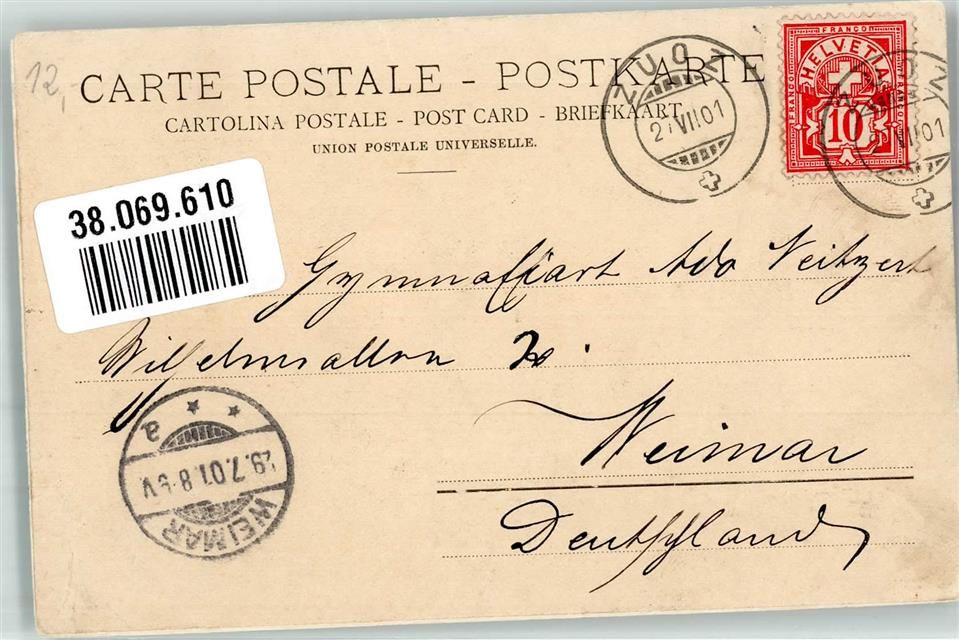 12,
CARTE POSTALE - POSTKARTE
CARTOLINA POSTALE - POST CARD - BRIEFKAART
UNION POSTALE UNIVERSELLE.
ZUOZ
27.VII.01
FRANCO
HELVETIA
FRANCO
FRANCO
10
VII.01
38.069.610
Gymnasiast Ado
Wilhelmsallee
Weimar
Deutschland
a
29.7.01.8-9V
WEIMAR